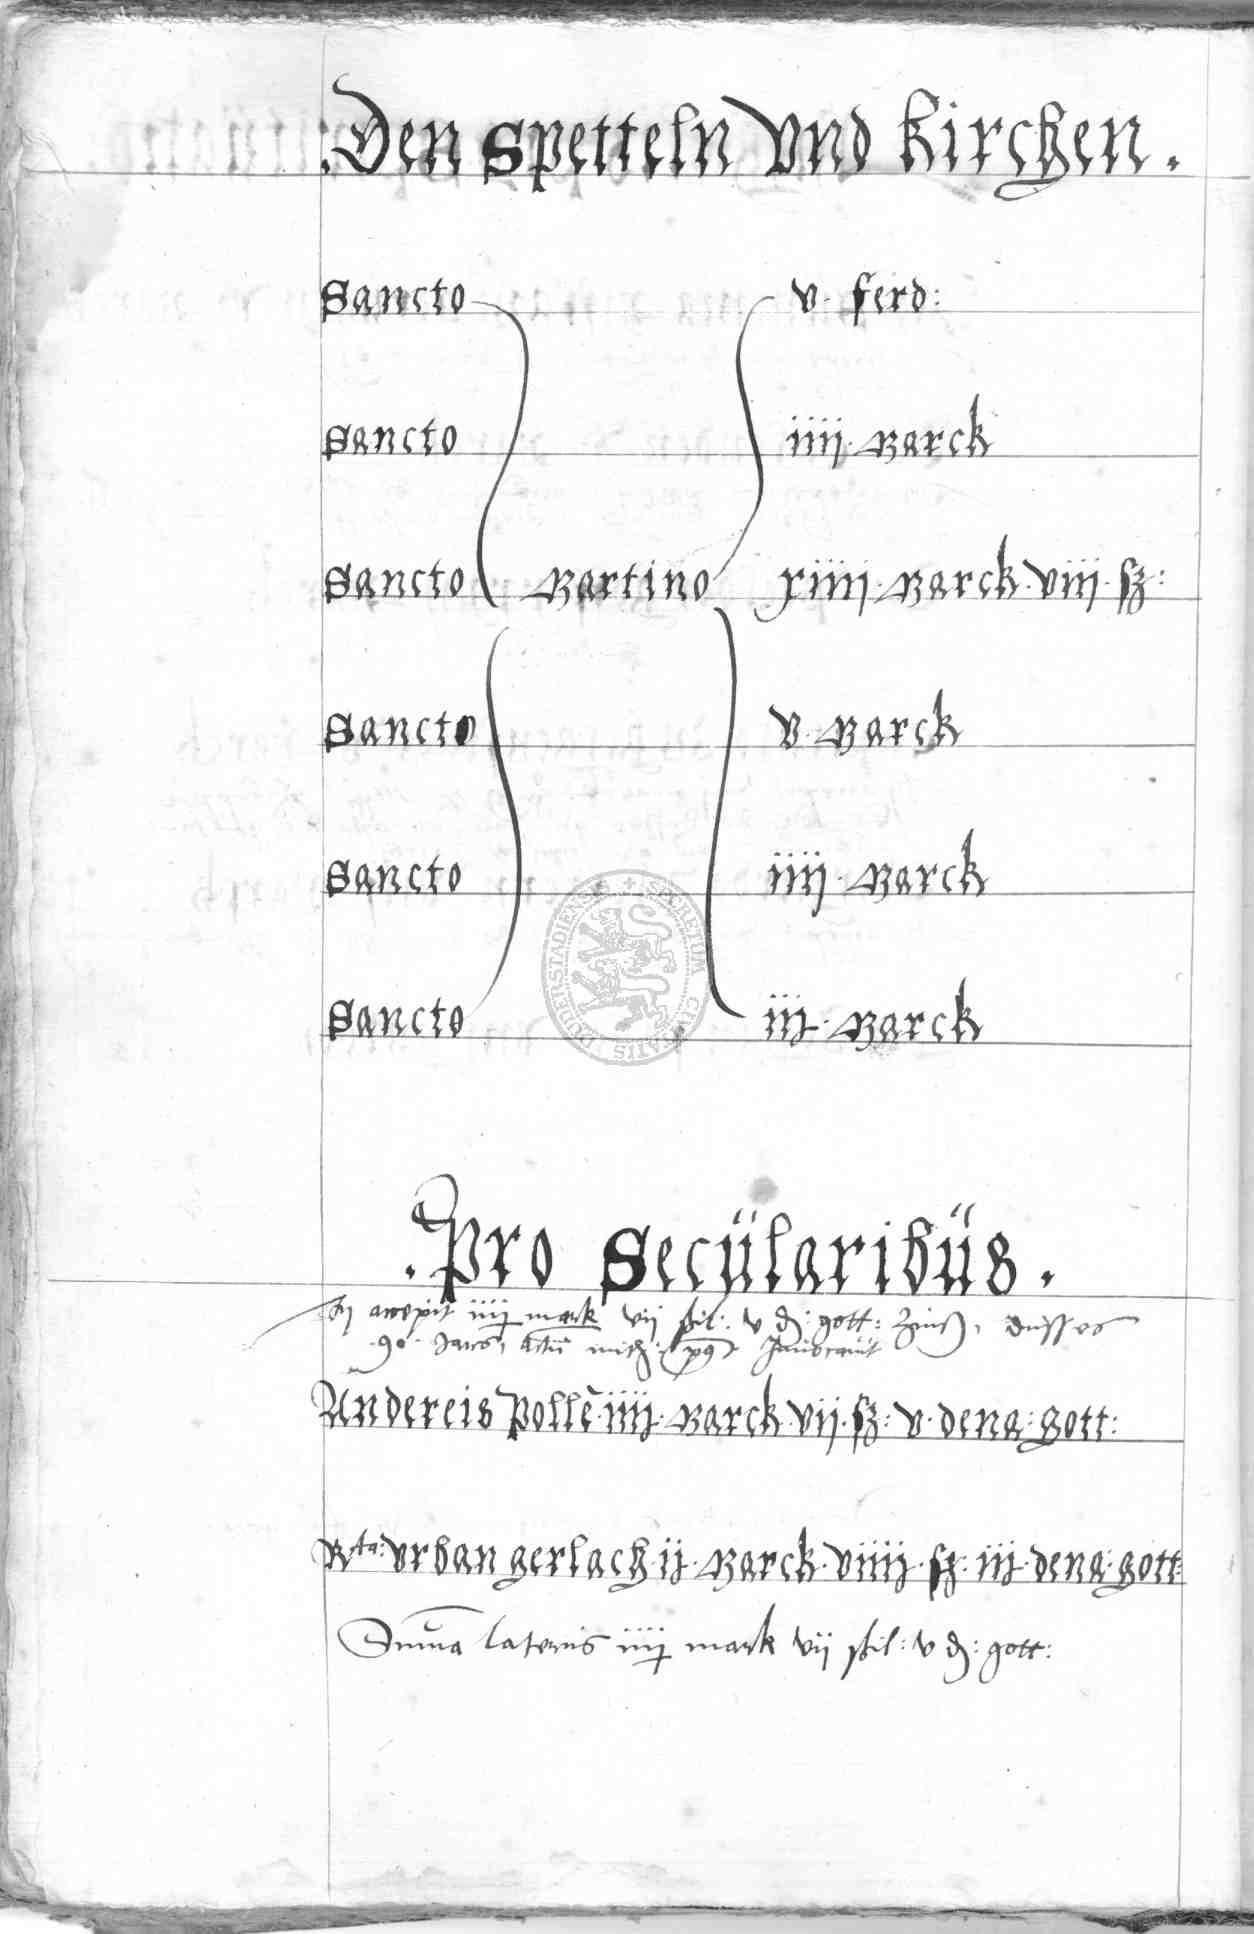 .Den Spetteln Vnd Kirchen.
Sancto v. ferd:
Sancto iiij. Marck
Sancto Martino xiiij. Marck. viij. sz:
Sancto v. Marck
Sancto iiij. Marck
Sancto iij. Marck
SECRETUM CIVITATIS DUDERSTADIENSIS
.Pro Secülaribüs.
accepit iiij mark vij shil: v d: gott: Zinß, dusses
90 Jares,
Andereis Polle iiij. Marck. vij. sz: v. dena: gott:
Rta: vrban gerlach ij. Marck. viiij. sz: iij. dena: gott:
Suma lateris iiij mark vij shil: v d: gott: